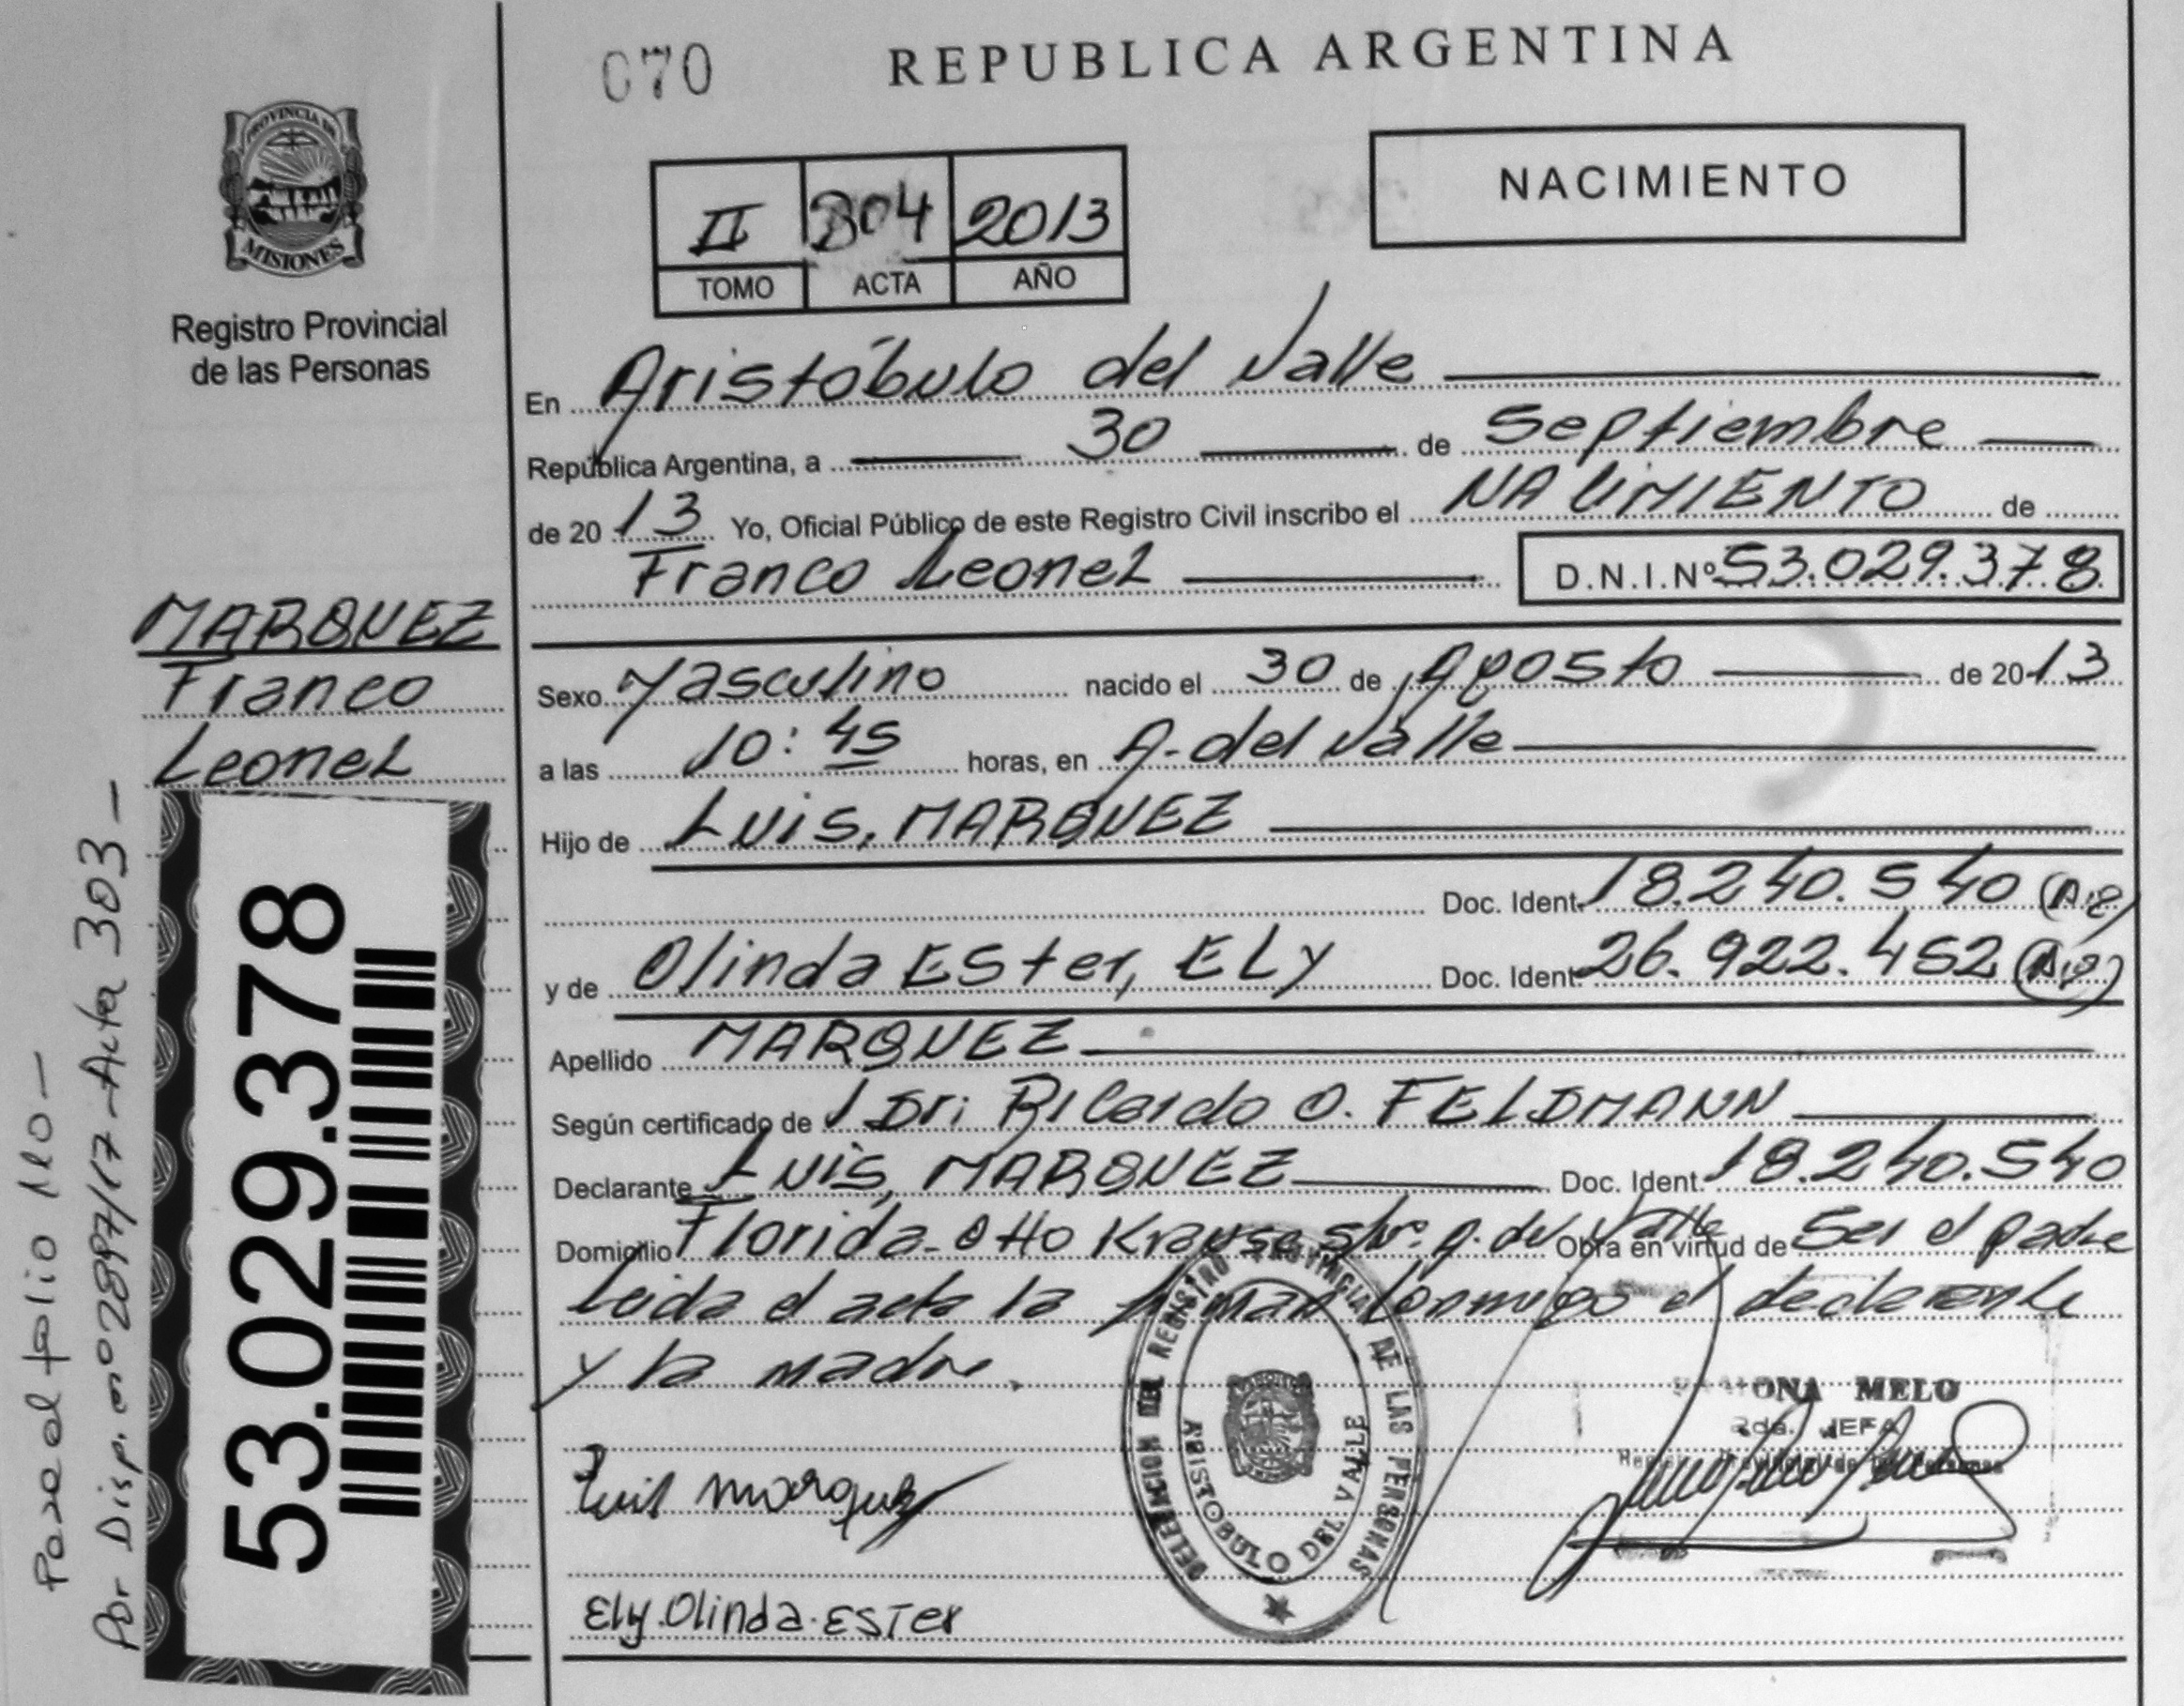 070
REPUBLICA ARGENTINA
NACIMIENTO
II 304 2013
TOMO ACTA AÑO
PROVINCIA DE
MISIONES
Registro Provincial
de las Personas
En Aristóbulo del Valle
República Argentina, a 30 de Septiembre
de 2013 Yo, Oficial Público de este Registro Civil inscribo el NACIMIENTO de
Franco Leonel D.N.I.Nº 53.029.378
MARQUEZ
Franco
Leonel
Sexo Masculino nacido el 30 de Agosto de 2013
a las 10:45 horas, en A. del Valle
Hijo de Luis, MARQUEZ
Doc. Ident. 18.240.540
y de Olinda Ester, ELY Doc. Ident. 26.922.452
Apellido MARQUEZ
Según certificado de Dr: Ricardo O. FELDMANN
Declarante Luis, MARQUEZ Doc. Ident. 18.240.540
Domicilio Florida - Otto Krause A. del Valle Obra en virtud de Ser el padre
Leida el acta la firman conmigo el declarante
y la madre.
53.029.378
Pase al folio
Por Disp. nº 02897/17 - Acta 303 -
DELEGACION DEL REGISTRO PROVINCIAL DE LAS PERSONAS
ARISTOBULO DEL VALLE
MELO
JEFA
Luis Marquez
Ely. Olinda. Ester